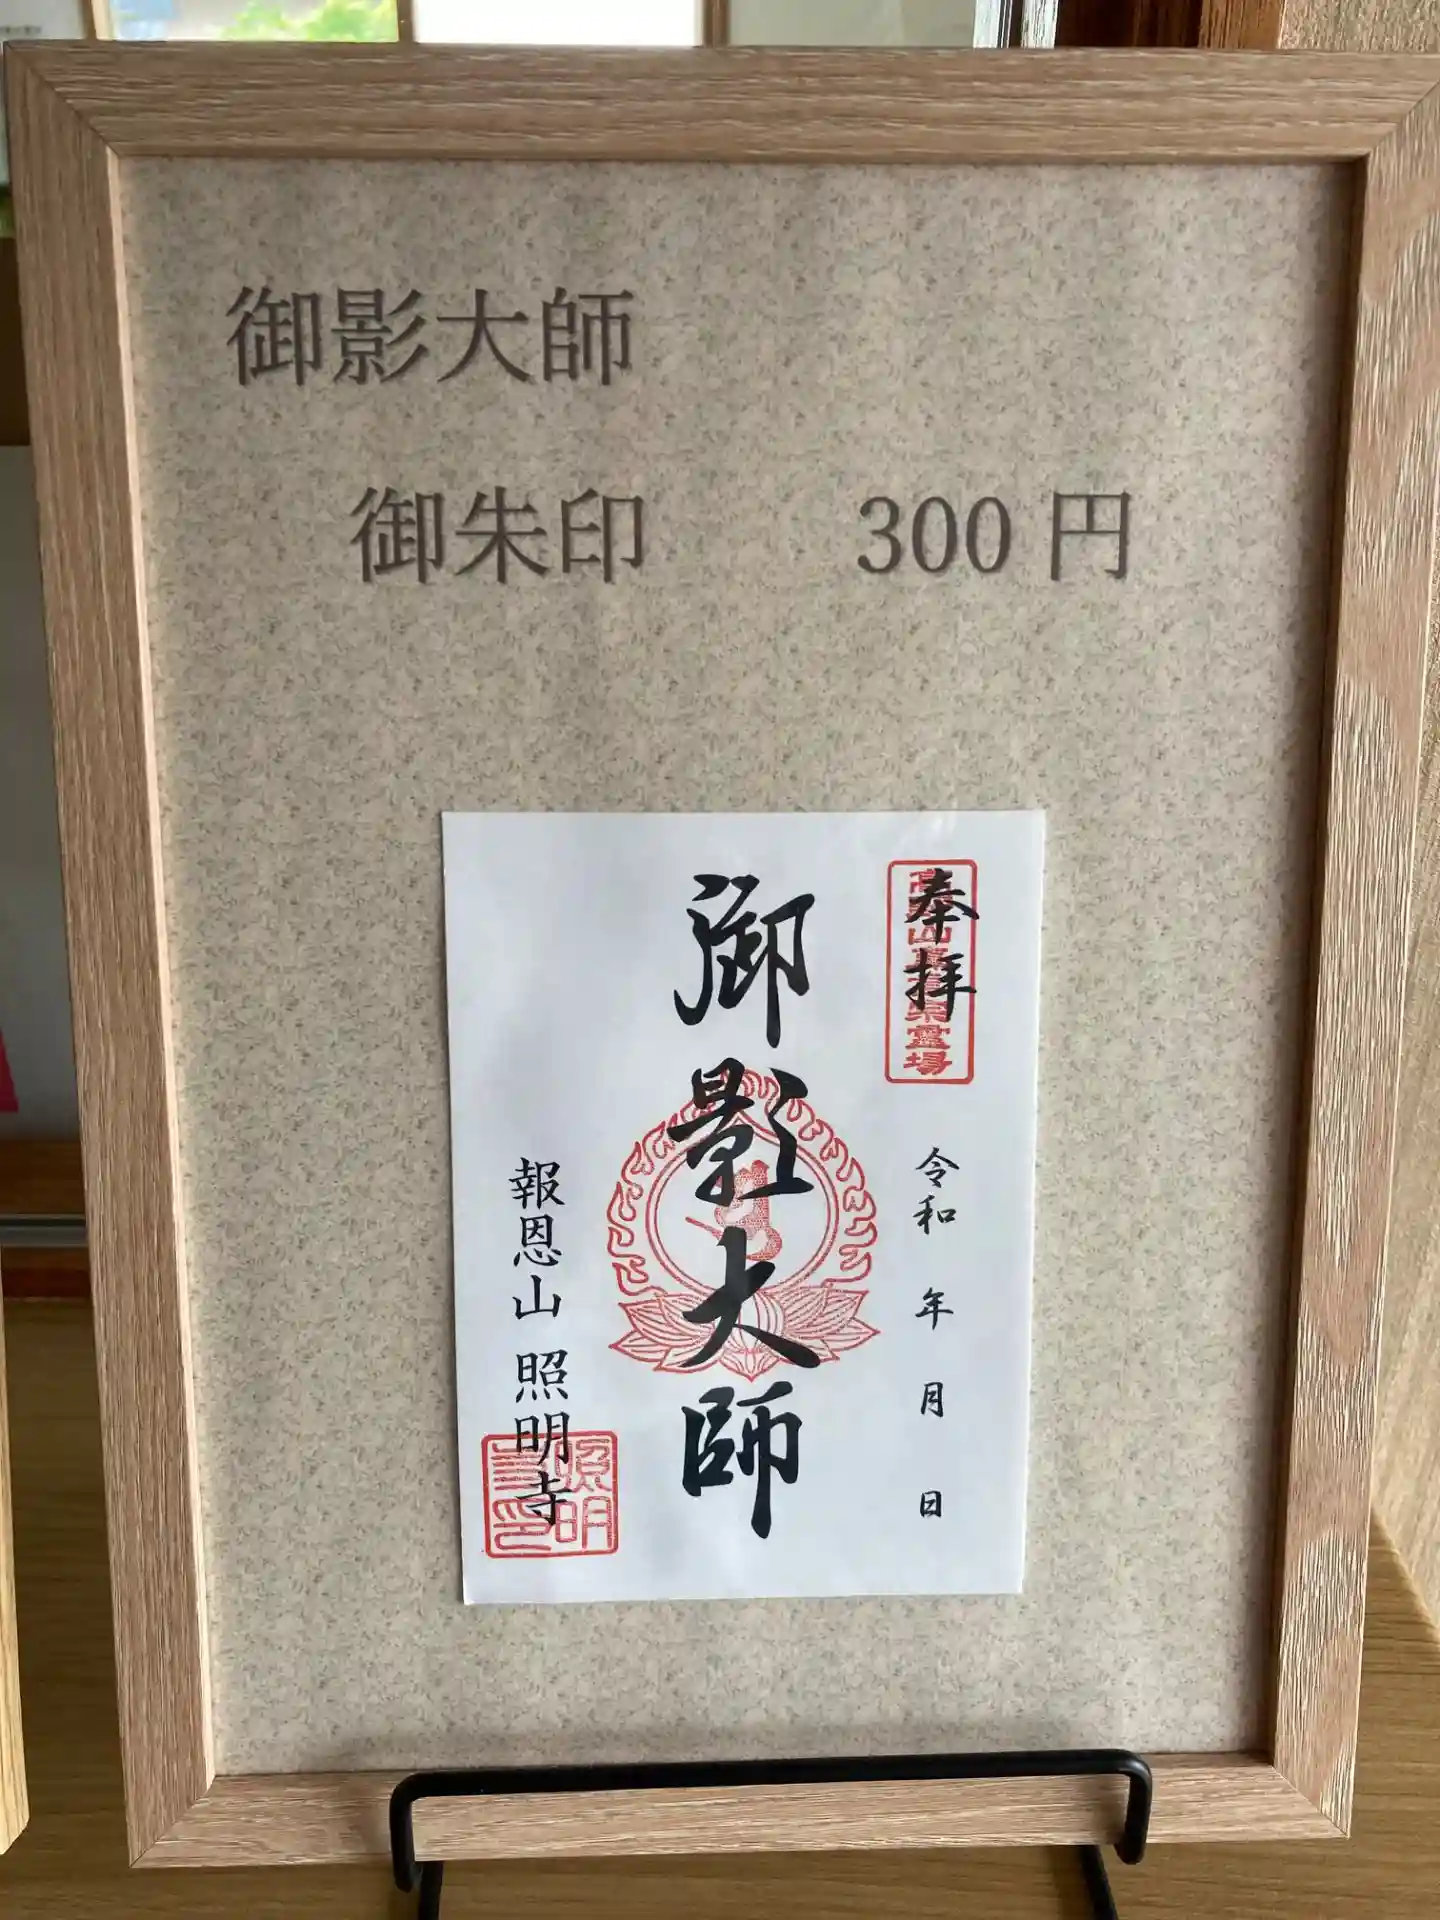 御影大師
御朱印 300円
奉拝
令和 年 月 日
御影大師
報恩山 照明寺